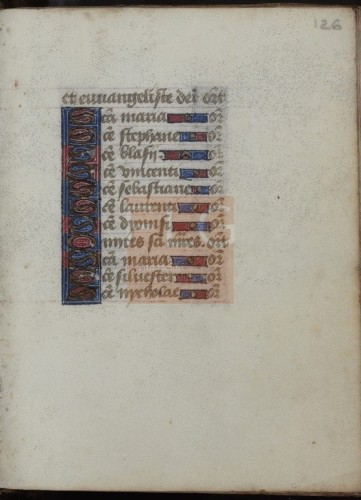 126
et euuangeliste dei ort
Scā maria or
Scē stephane or
Scē blasii or
Scē vincenti or
Scē sebastiane or
Scē laurenti or
Scē dionisi or
Omnes scī mīres. ort
Scā maria or
Scē siluester or
Scē nycholae or